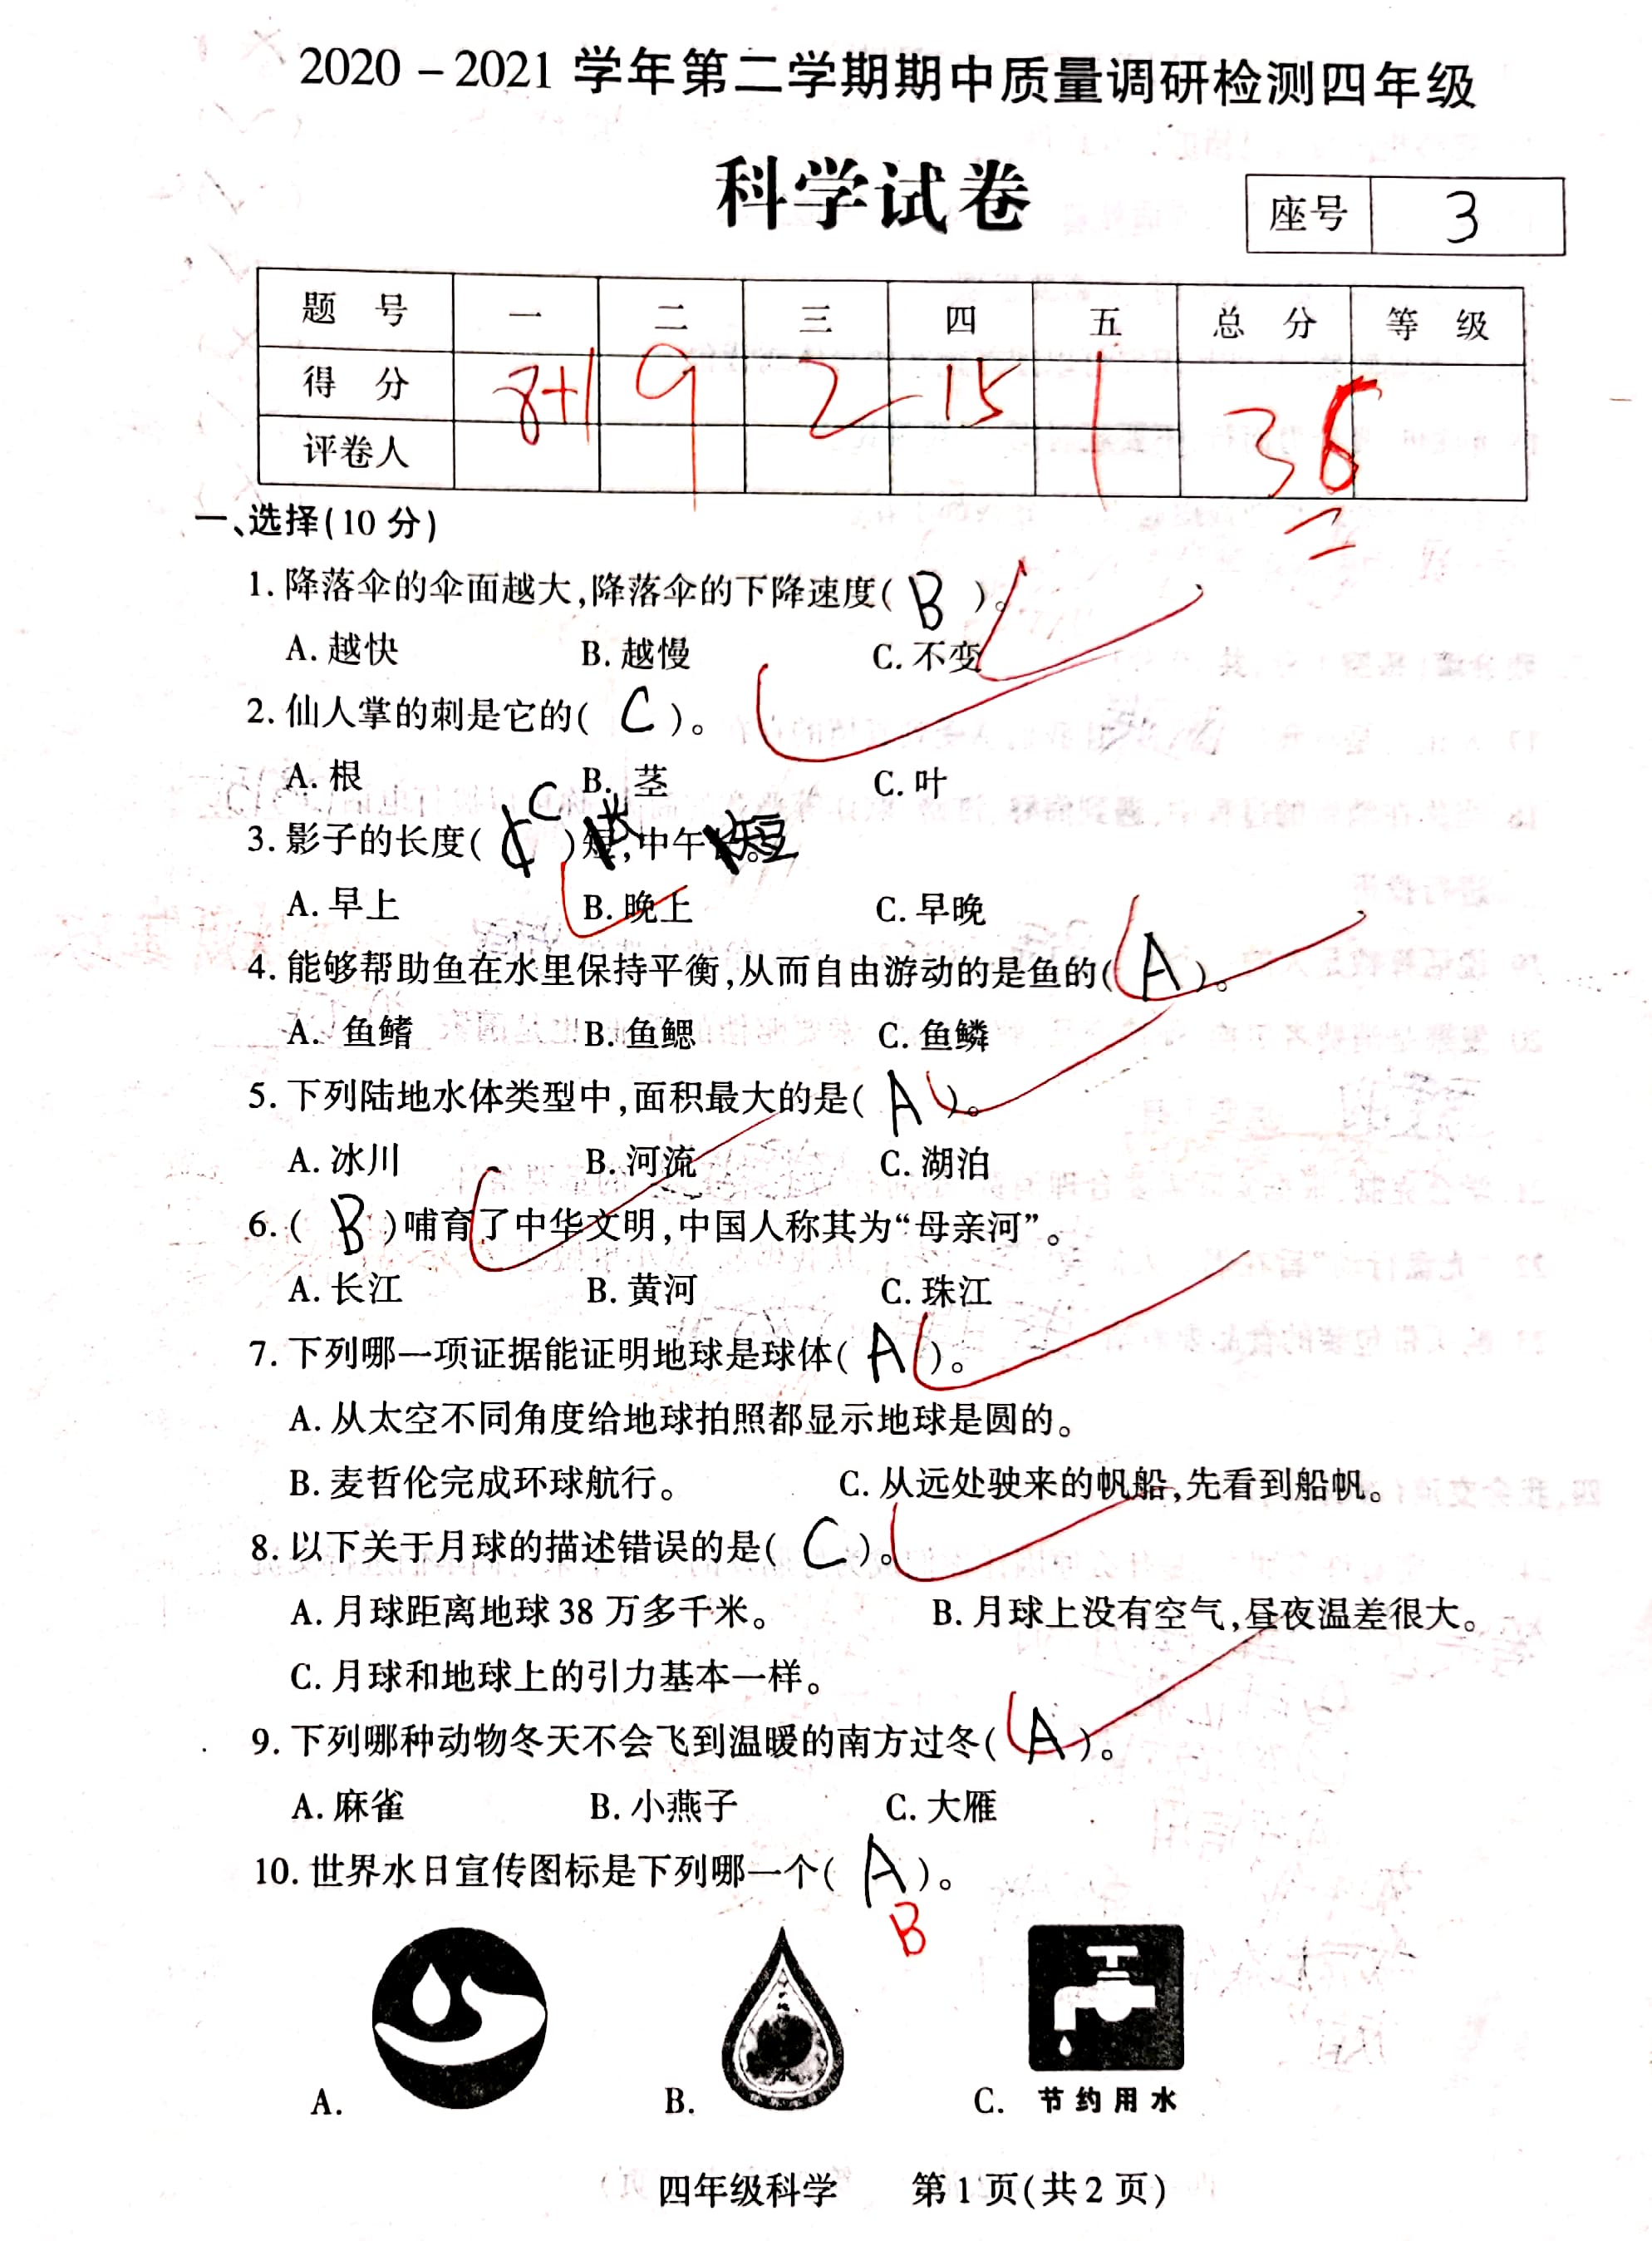 2020-2021 学年第二学期期中质量调研检测四年级
科学试卷
座号 3
题 号 一 二 三 四 五 总 分 等 级
得 分 8+1 9 2 15 1 36
评卷人
一、选择(10 分)
1. 降落伞的伞面越大,降落伞的下降速度( B )。
A. 越快 B. 越慢 C. 不变
2. 仙人掌的刺是它的( C )。
A. 根 B. 茎 C. 叶
3. 影子的长度( C )长,中午短。
A. 早上 B. 晚上 C. 早晚
4. 能够帮助鱼在水里保持平衡,从而自由游动的是鱼的( A )。
A. 鱼鳍 B. 鱼鳃 C. 鱼鳞
5. 下列陆地水体类型中,面积最大的是( A )。
A. 冰川 B. 河流 C. 湖泊
6. ( B )哺育了中华文明,中国人称其为“母亲河”。
A. 长江 B. 黄河 C. 珠江
7. 下列哪一项证据能证明地球是球体( A )。
A. 从太空不同角度给地球拍照都显示地球是圆的。
B. 麦哲伦完成环球航行。 C. 从远处驶来的帆船,先看到船帆。
8. 以下关于月球的描述错误的是( C )。
A. 月球距离地球 38 万多千米。 B. 月球上没有空气,昼夜温差很大。
C. 月球和地球上的引力基本一样。
9. 下列哪种动物冬天不会飞到温暖的南方过冬( A )。
A. 麻雀 B. 小燕子 C. 大雁
10. 世界水日宣传图标是下列哪一个( A )。
B
A. B. C. 节约用水
四年级科学 第 1 页(共 2 页)